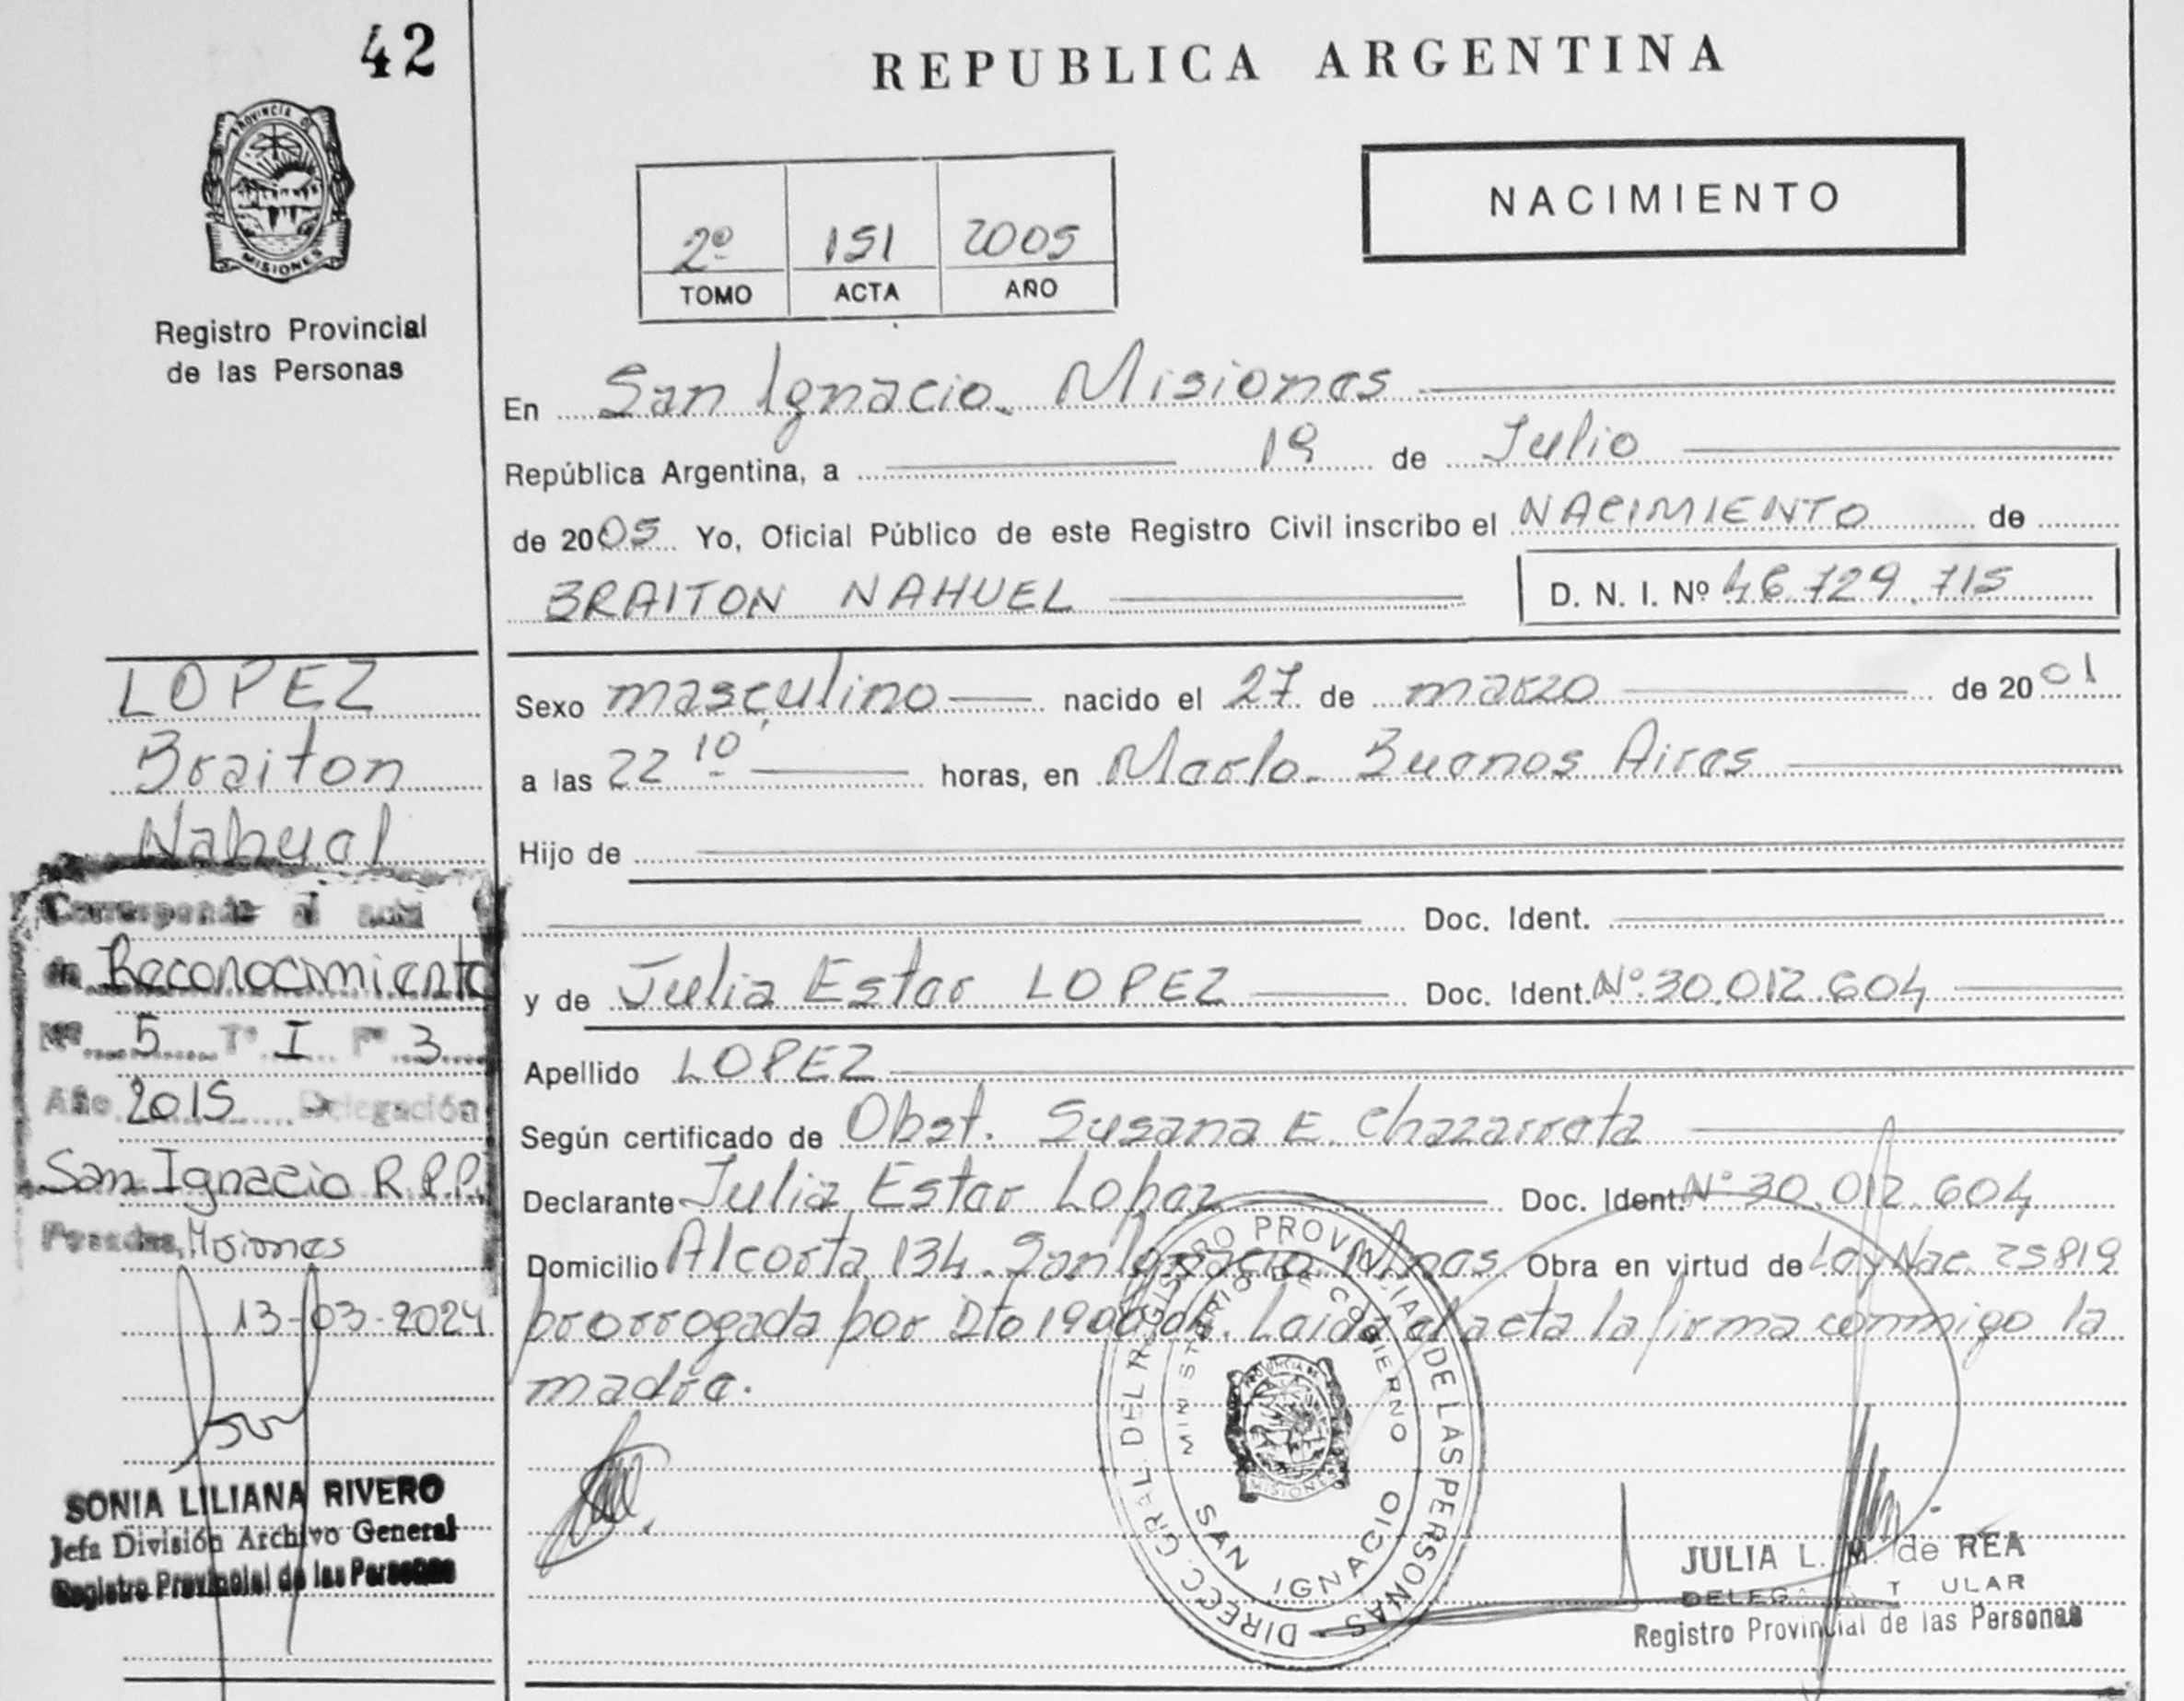 42
PROVINCIA DE
MISIONES
Registro Provincial
de las Personas
REPUBLICA ARGENTINA
NACIMIENTO
2º 151 2005
TOMO ACTA AÑO
En San Ignacio. Misiones
República Argentina, a 19 de Julio
de 2005 Yo, Oficial Público de este Registro Civil inscribo el NACIMIENTO de
BRAITON NAHUEL D. N. I. Nº 46.729.715
Sexo masculino nacido el 27 de marzo de 2001
a las 22 10 horas, en Merlo. Buenos Aires
Hijo de
Doc. Ident.
y de Julia Ester LOPEZ Doc. Ident. Nº 30.012.604
Apellido LOPEZ
Según certificado de Obst. Susana E. Chazarreta
Declarante Julia Ester Lopez Doc. Ident. Nº 30.012.604
Domicilio Alcorta 134. San Ignacio. Mnes. Obra en virtud de Ley Nac. 25819
prorrogada por Dto 1900/04. Leida el acta la firma conmigo la
madre.
LOPEZ
Braiton
Nahuel
Corresponde al acta
de Reconocimiento
Nº 5 Tº I Fº 3
Año 2015 Delegación
San Ignacio R.P.P.
Posadas, Misiones
13-03-2024
SONIA LILIANA RIVERO
Jefa División Archivo General
Registro Provincial de las Personas
DIRECC. GRAL. DEL REGISTRO PROVINCIAL DE LAS PERSONAS
MINISTERIO DE GOBIERNO
SAN IGNACIO
PROVINCIA DE
MISIONES
JULIA L. M. de REA
Registro Provincial de las Personas